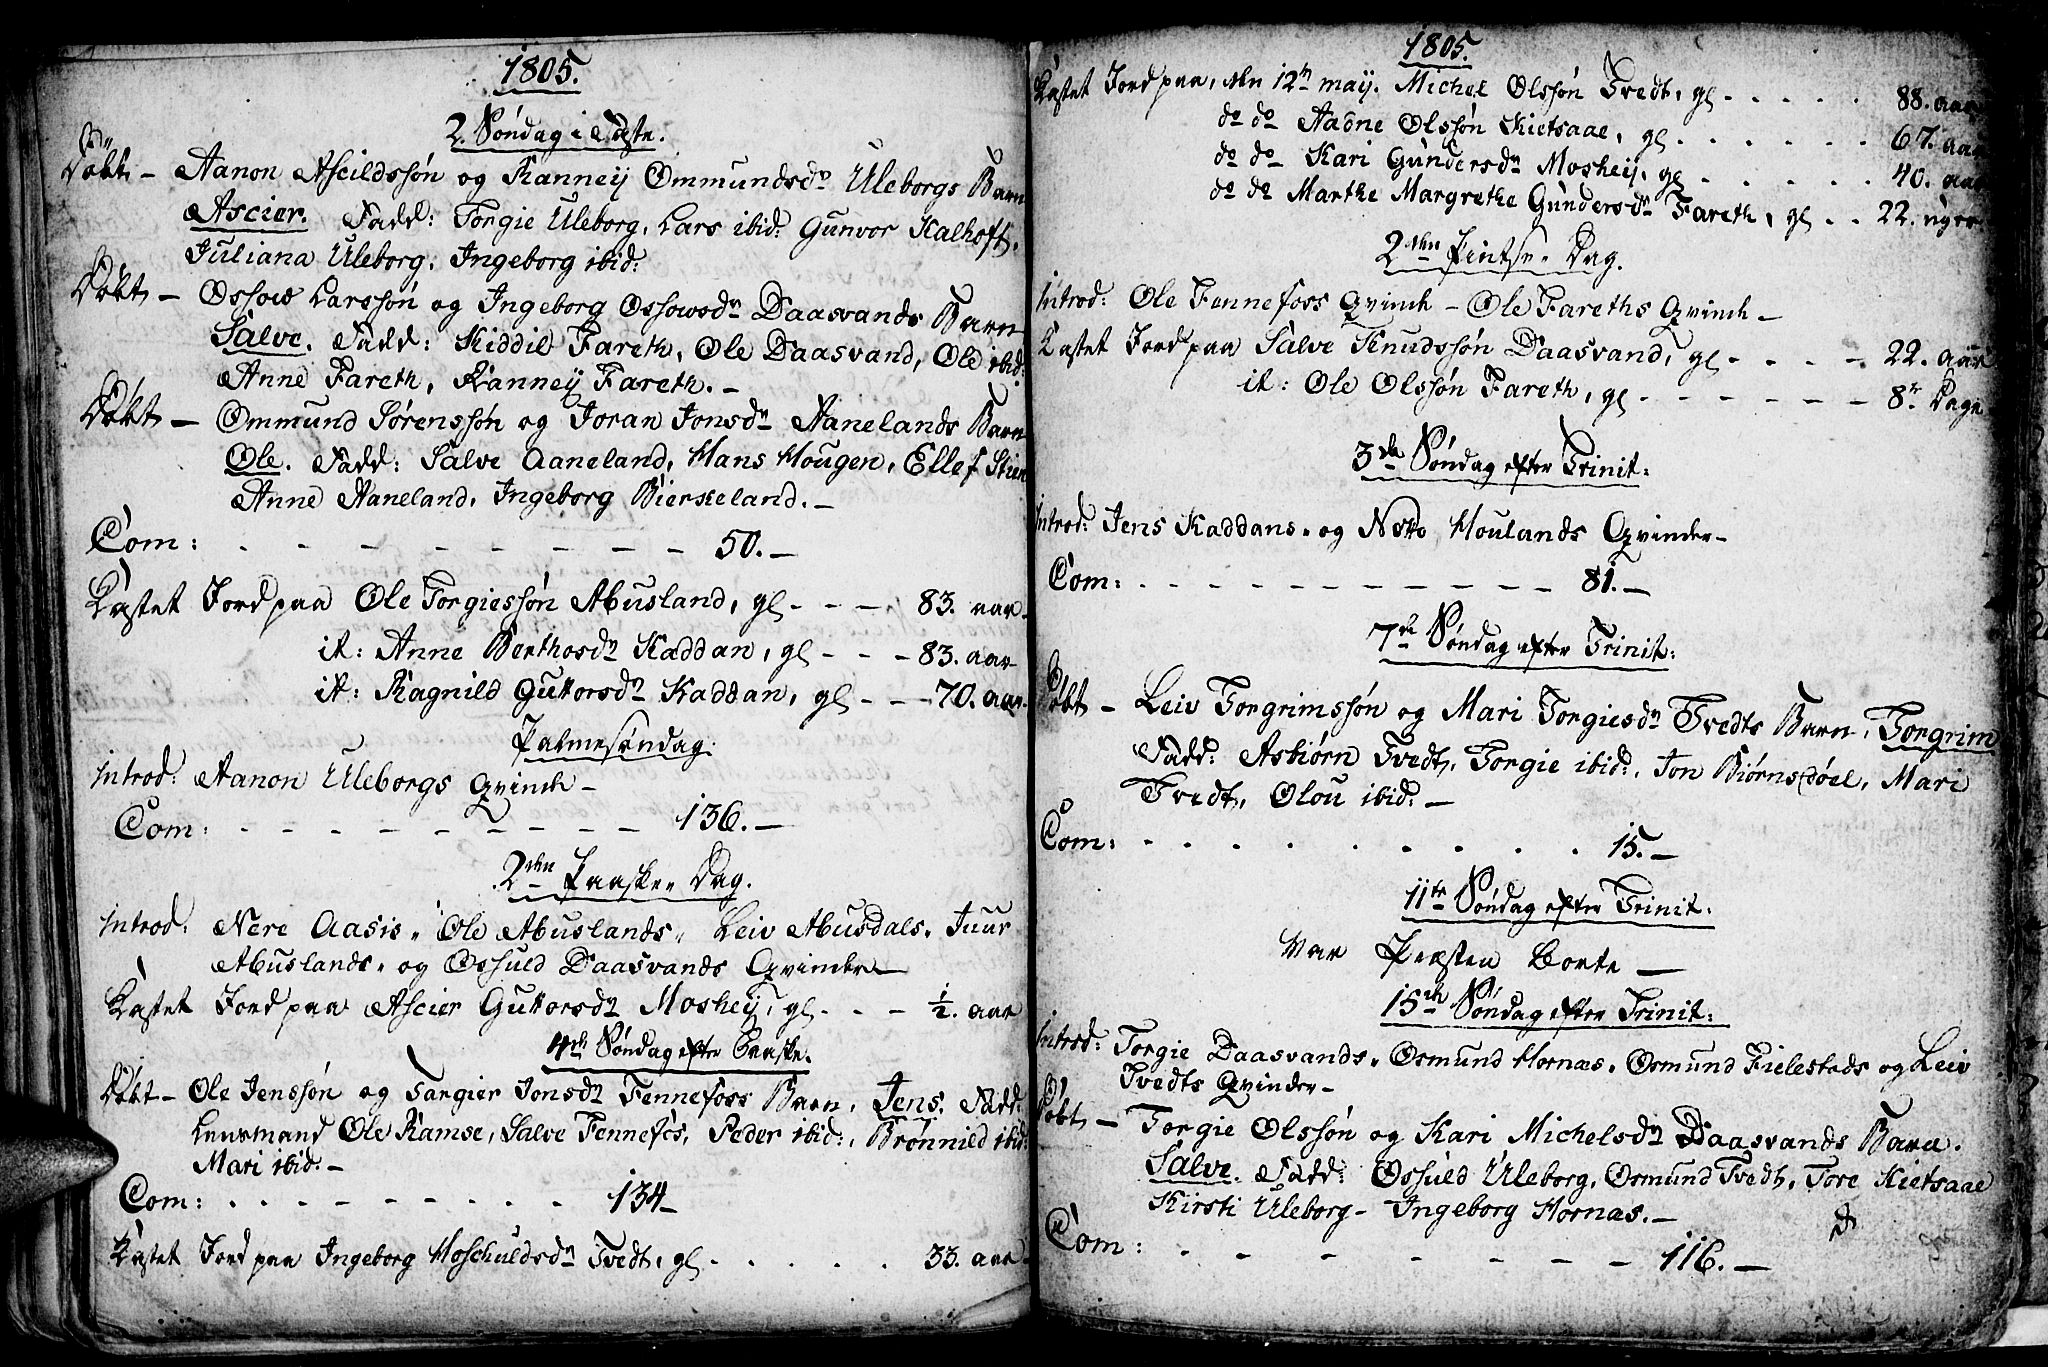 1805.
2. Søndag i Faste.
Døbt – Aanon Ascildssøn og Ranneÿ Ommundsdr Uleborgs Barn
Ascier. Fadd: Torgie Uleborg, Lars ibid: Gunvor Kalhoft,
Juliana Uleborg, Ingeborg ibid:
Døbt – Ossow Larssøn og Ingeborg Ossowsdr Daasvands Barn
Salve. Fadd: Kiddil Fareth, Ole Daasvand, Ole ibid:
Anne Fareth, Ranneÿ Fareth. –
Døbt – Ommund Sørenssøn og Joran Jonsdr Aanelands Barn
Ole. Fadd: Salve Aaneland, Hans Hougen, Ellef Stien
Anne Aaneland, Ingeborg Bierkeland. –
Com: - - - - - - - - - 50. –
Kastet Jord paa Ole Torgiessøn Abusland, gl - - - 83. aar
it: Anne Berthosdr Kaddan, gl - - - 83. aar
it: Ragnild Guttorsdr Kaddan, gl - - - 70. aar.
Palmesøndag:
Introd: Aanon Uleborgs Qvinde –
Com: - - - - - - - - - 136. –
2den Paaske-Dag.
Introd: Nere Aasis, Ole Abuslands, Leiv Abusdals, Juur
Abuslands, og Ossuld Daasvands Qvinder –
Kastet Jord paa Ascier Guttorsdr Mosheÿ, gl - - - ½. aar
4de Søndag efter Paaske.
Døbt – Ole Jenssøn og Targier Jonsdr Fennefoss Barn, Jens. Fadd:
Lensmand Ole Ramse, Salve Fennefos, Peder ibid:, Brønnild ibid:
Mari ibid: –
Com: - - - - - - - - - 134 –
Kastet Jord paa Ingeborg Hoschuldsdr Tvedt, gl - - - - - 33. aar
1805.
Kastet Jord paa, den 12te maÿ. Michel Olssøn Tvedt, gl - - - - - 88. aar
do do Aadne Olssøn Kietsaae, gl - - - - - - 67. aar
do do Kari Gundersdr Mosheÿ, gl - - - - - - 40. aar
do do Marthe Margrethe Gundersdr Fareth, gl - - 22. uger
2den Pintse-Dag.
Introd: Ole Fennefoss Qvinde – Ole Fareths Qvinde –
Kastet Jord paa Salve Knudssøn Daasvand, gl - - - - 22. aar
it: Ole Olssøn Fareth, gl - - - - - - 8te Dage
3de Søndag efter Trinit:
Introd: Jens Kaddans, og Houlands Qvinder –
Com: - - - - - - - - - - - 81. –
7de Søndag efter Trinit:
Døbt – Leiv Torgrimssøn og Mari Torgiesdr Tvedts Barn, Torgrim
Fadd: Asbiørn Tvedt, Torgie ibid:, Jon Biørnsdøel, Mari
Tvedt, Olou ibid: –
Com: - - - - - - - - 15. –
11te Søndag efter Trinit:
Var Præsten borte –
15de Søndag efter Trinit:
Introd: Torgie Daasvands, Osmund Hornas, Osmund Fielesteds og Leiv
Tvedts Qvinder –
Døbt – Torgie Olssøn og Kari Michelsdr Daasvands Barn.
Salve. Fadd: Ossuld Uleborg, Osmund Tvedt, Tore Kietsaae
Kirsti Uleborg – Ingeborg Hornas. –
Com: - - - - - - - - 116. –